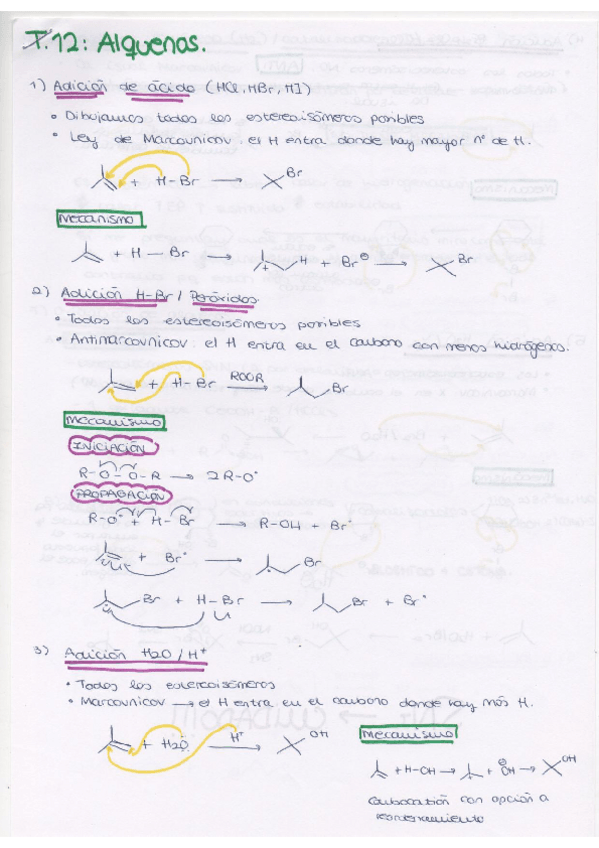 T.12: Alquenos.
1) Adición de ácido (HCl, HBr, HI)
• Dibujamos todos los estereoisómeros posibles
• Ley de Marcovnicov: el H entra donde hay mayor nº de H.
+ H-Br → Br
Mecanismo
+ H — Br → + H + Br⊖ → Br
2) Adición H-Br / Peróxidos
• Todos los estereoisómeros posibles
• Antimarcovnicov: el H entra en el carbono con menos hidrógenos.
+ H-Br ROOR → Br
Mecanismo
INICIACIÓN
R-O-O-R → 2R-O•
PROPAGACIÓN
R-O• + H-Br → R-OH + Br•
+ Br• → Br
Br + H-Br → Br + Br•
3) Adición H2O/H+
• Todos los estereoisómeros
• Marcovnicov → el H entra en el carbono donde hay más H.
+ H2O H+ → OH
Mecanismo
+ H-OH → + + OH⊖ → OH
Carbocatión con opción a
reordenamiento